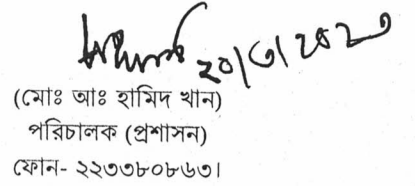 ২০/৩/২০২৩
(মোঃ আঃ হামিদ খান)
পরিচালক (প্রশাসন)
ফোন- ২২৩৩৮০৮৬৩।